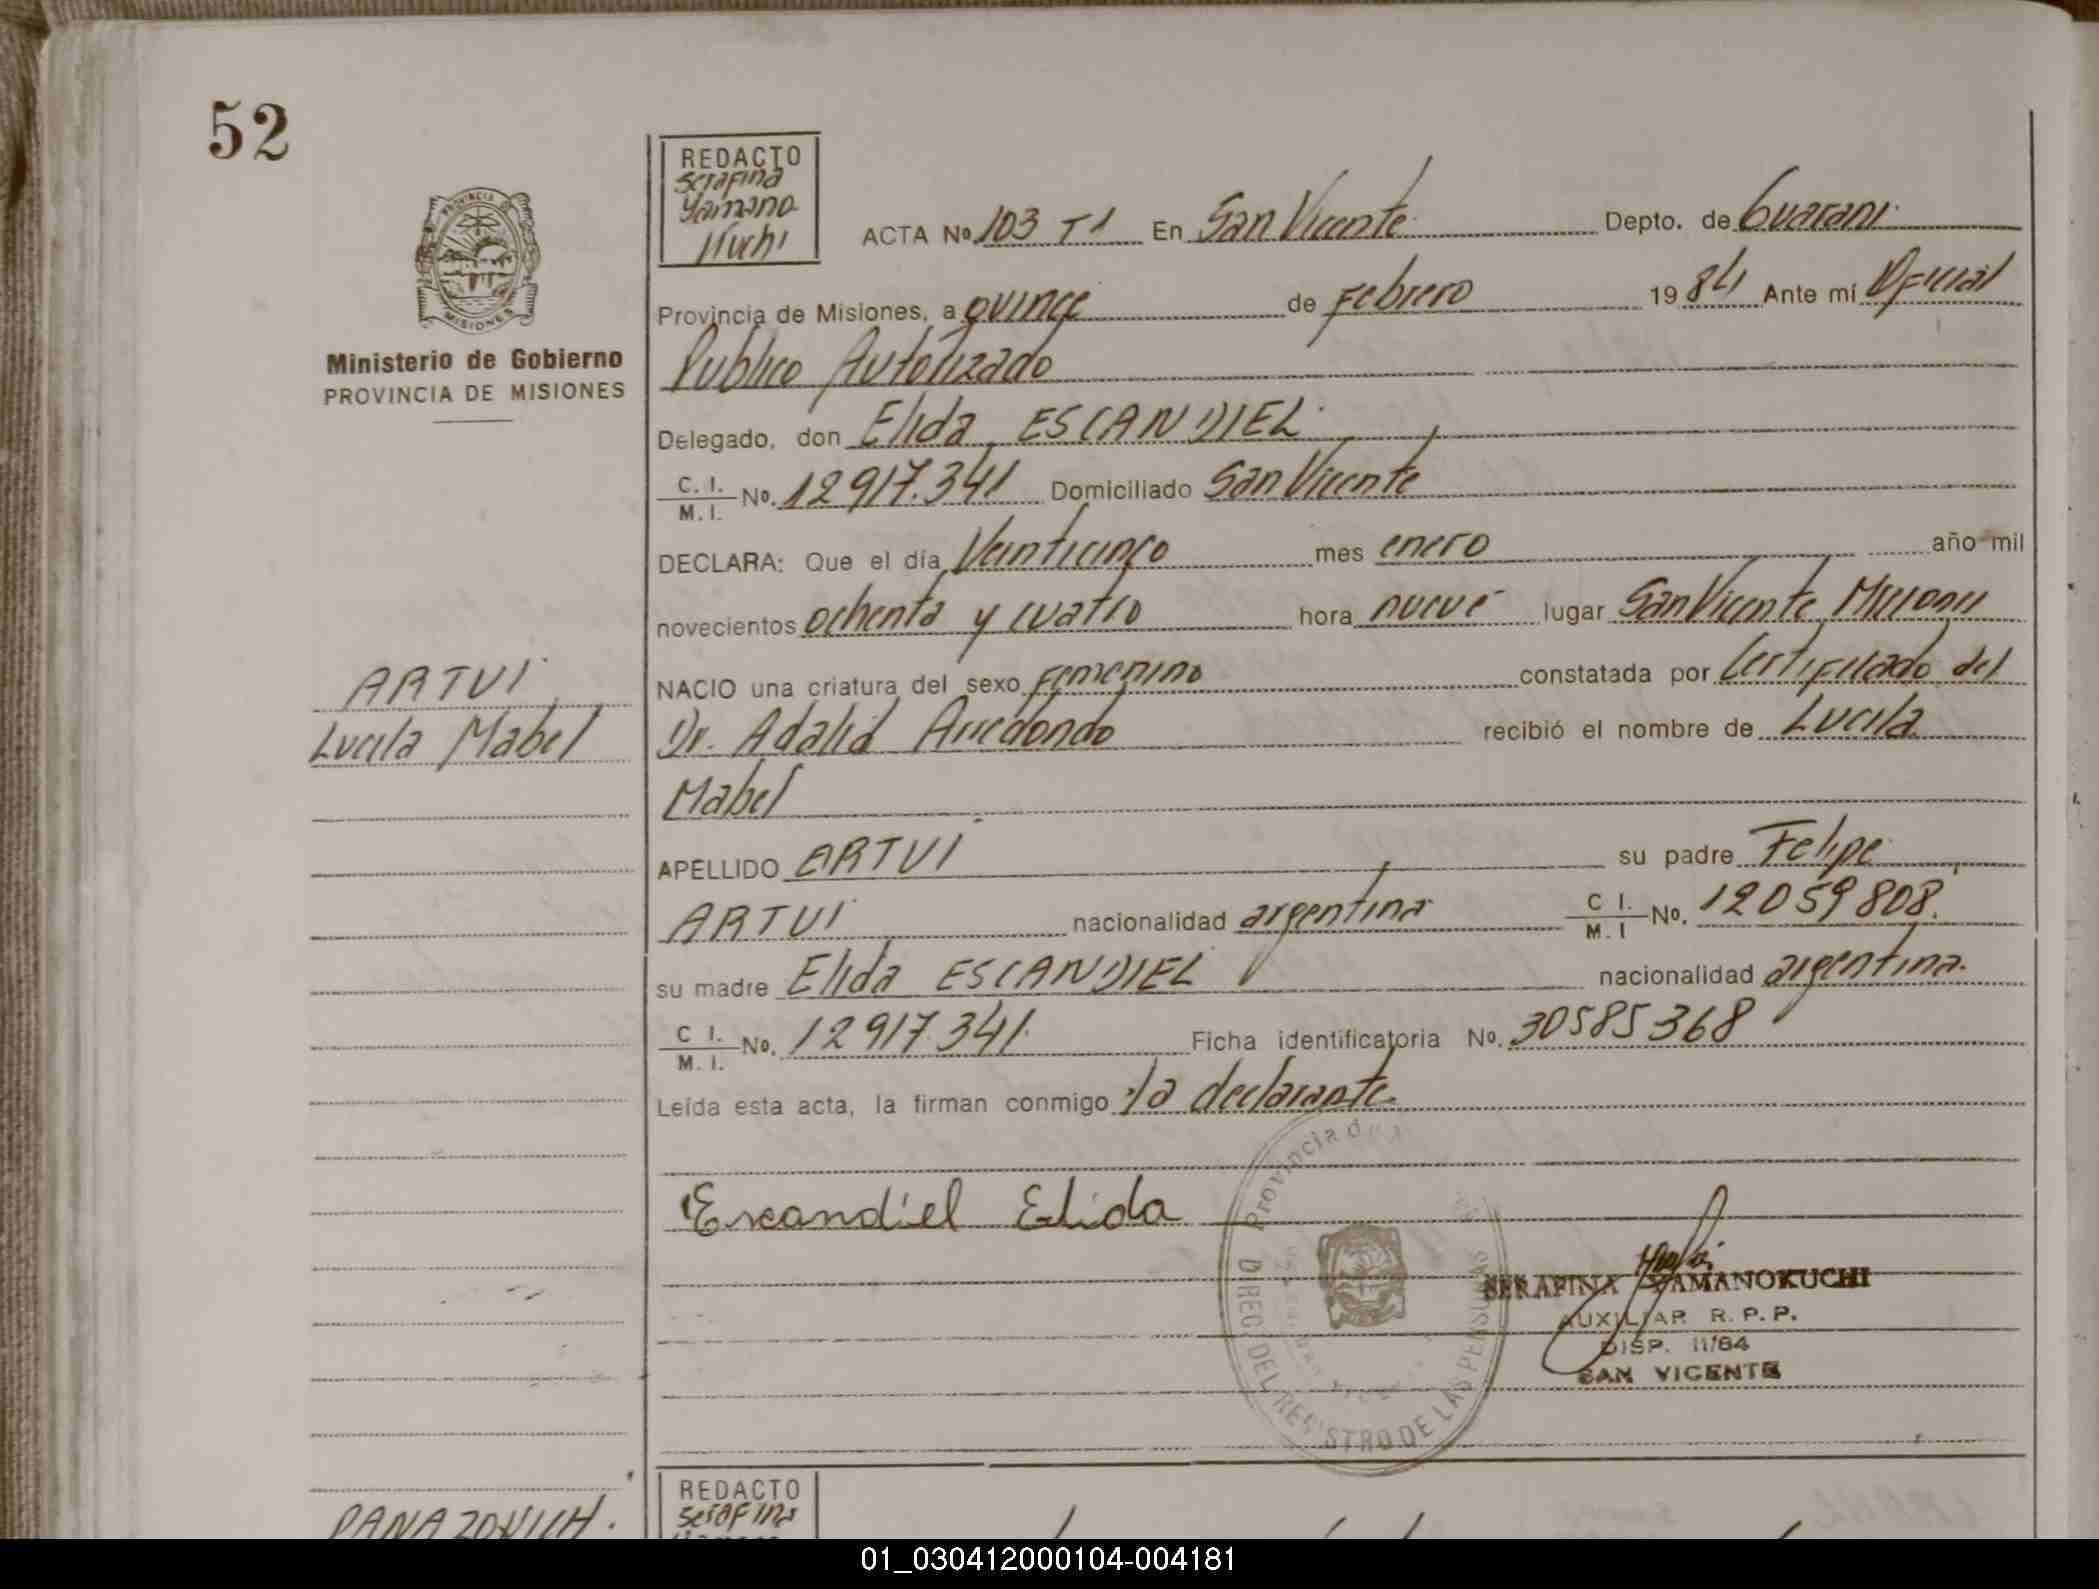 52
REDACTO
Serafina
Yamano
Kuchi
ACTA Nº 103 T1 En San Vicente Depto. de Guarani
PROVINCIA DE
MISIONES
Ministerio de Gobierno
PROVINCIA DE MISIONES
Provincia de Misiones, a quince de Febrero 1984 Ante mí Oficial
Publico Autorizado
Delegado, don Elida ESCANDIEL
C. I.
M. I. No. 12917.341 Domiciliado San Vicente
DECLARA: Que el día Veinticinco mes enero año mil
novecientos ochenta y cuatro hora nueve lugar San Vicente Misiones
NACIO una criatura del sexo femenino constatada por Certificado del
Dr. Adalid Arredondo recibió el nombre de Lucila
Mabel
ARTUI
Lucila Mabel
APELLIDO ARTUI su padre Felipe
ARTUI nacionalidad argentina C I. M. I No. 12059808.
su madre Elida ESCANDIEL nacionalidad argentina.
C I.
M. I. No. 12917.341. Ficha identificatoria No. 30585368
Leída esta acta, la firman conmigo la declarante.
Escandiel Elida
Provincia d
DIREC. DEL REGISTRO DE LAS PERSONAS
SERAFINA YAMANOKUCHI
AUXILIAR R. P. P.
DISP. 11/84
SAN VICENTE
REDACTO
Serafina
PANAZOVICH.
01_030412000104-004181